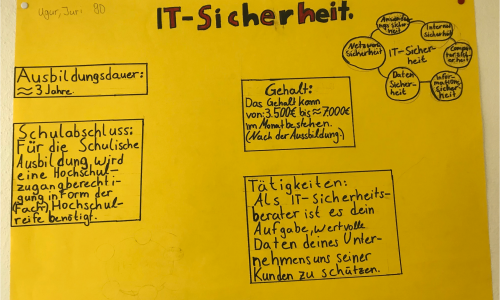 Ugur, Juri 9D
IT-Sicherheit.
Anwendungssicherheit
Internet
Sicherheit
Netzwerk
Sicherheit
IT-Sicher-
heit
Computersicherheit
Daten
Sicher-
heit
Informations
Sicher-
heit
Ausbildungsdauer:
≈ 3 Jahre.
Gehalt:
Das Gehalt kann
von: 3.500€ bis ≈ 7.000€
im Monat bestehen.
(Nach der Aussbildung.)
Schulabschluss:
Für die Schulische
Ausbildung, wird
eine Hochschul-
zugangberechti-
gung in Form der
(Fach) Hochschul-
reife benötigt.
Tätigkeiten:
Als IT-Sicherheits-
berater ist es dein
Aufgabe, wertvolle
Daten deines Unter-
nehmens uns seiner
Kunden zu schützen.